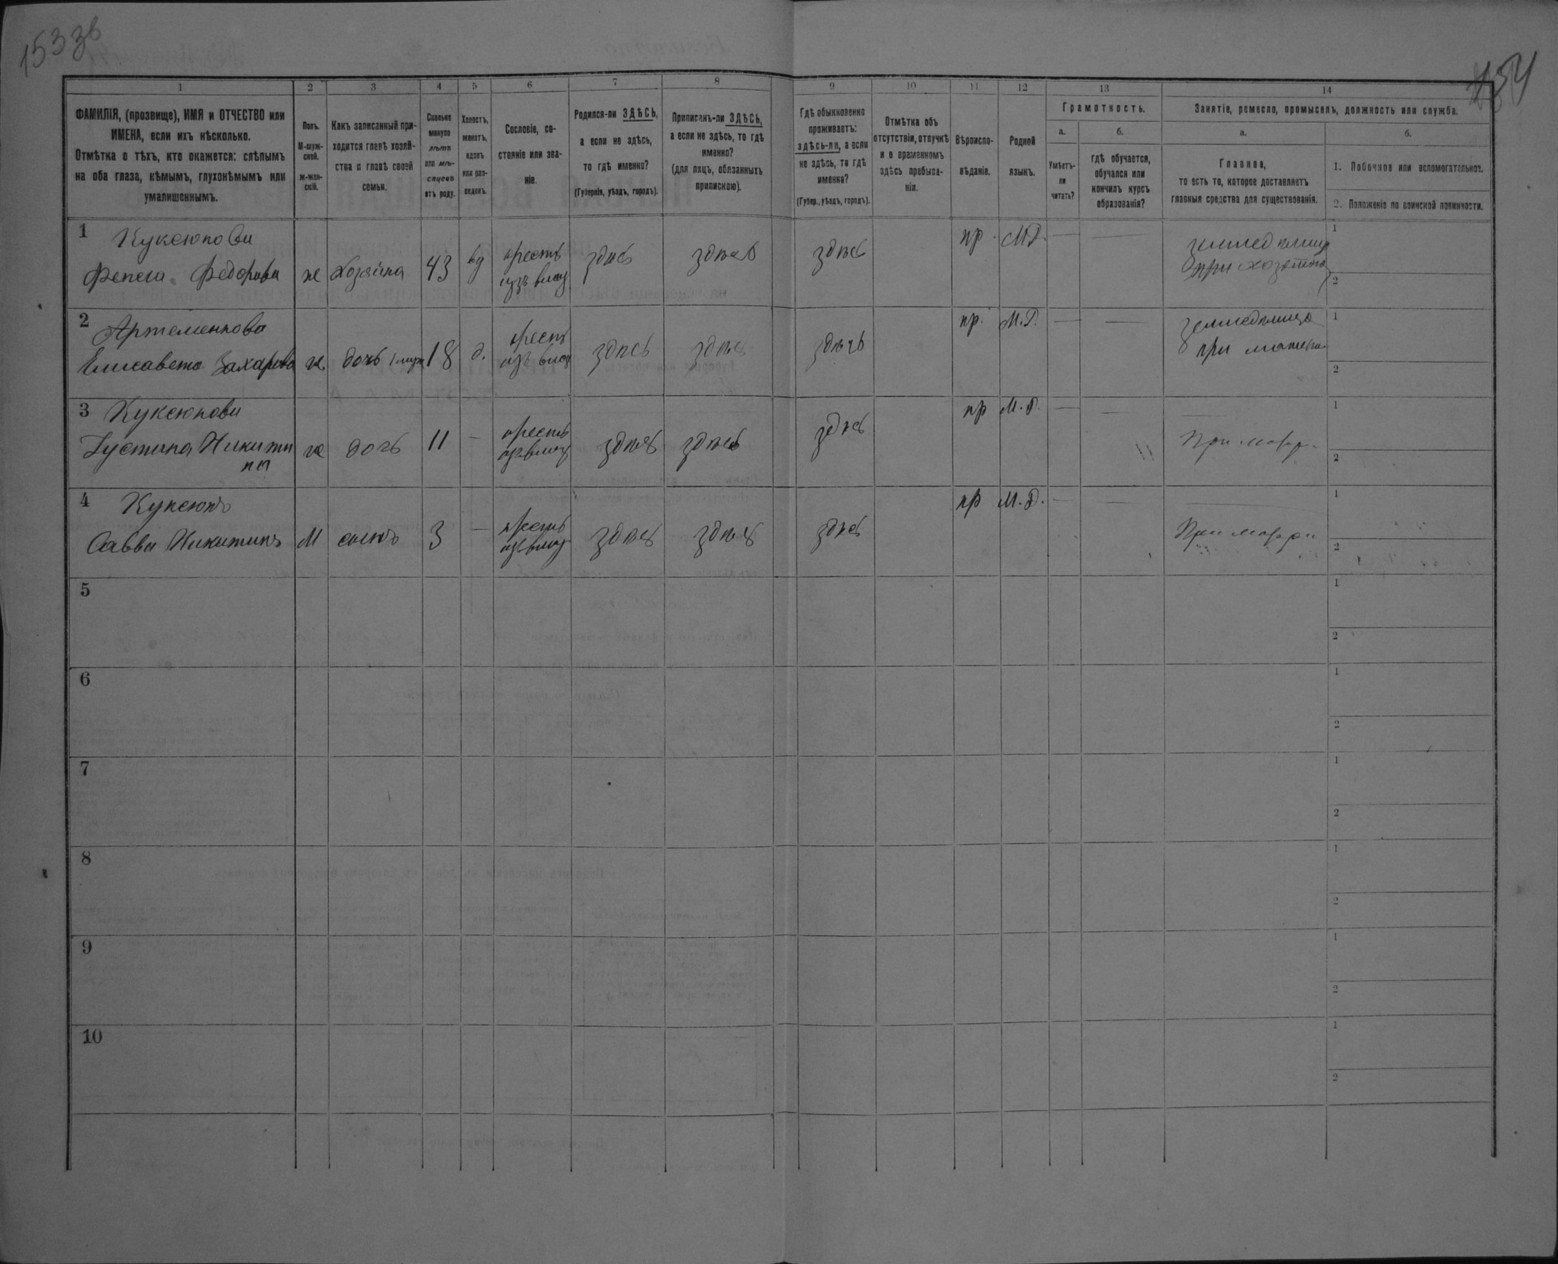 1533 об
54
1
2
3
4
5
6
7
8
9
10
11
12
13
14
ФАМИЛІЯ, (прозвище), ИМЯ и ОТЧЕСТВО или
ИМЕНА, если ихъ нѣсколько.
Отмѣтка о тѣхъ, кто окажется: слѣпымъ
на оба глаза, нѣмымъ, глухонѣмымъ или
умалишеннымъ.
Полъ.
М-муж-
ской.
ж-жен-
скій.
Какъ записанный при-
ходится главѣ хозяй-
ства и главѣ своей
семьи.
Сколько
минуло
лѣтъ
или мѣ-
сяцевъ
отъ роду.
Холостъ,
женатъ,
вдовъ
или раз-
веденъ.
Сословіе, со-
стояніе или зва-
ніе.
Родился-ли ЗДѢСЬ,
а если не здѣсь,
то гдѣ именно?
(Губернія, уѣздъ, городъ).
Приписанъ-ли ЗДѢСЬ,
а если не здѣсь, то гдѣ
именно?
(для лицъ, обязанныхъ
припискою).
Гдѣ обыкновенно
проживаетъ:
здѣсь-ли, а если
не здѣсь, то гдѣ
именно?
(Губер., уѣздъ, городъ).
Отмѣтка объ
отсутствіи, отлучкѣ
и о временномъ
здѣсь пребыва-
ніи.
Вѣроиспо-
вѣданіе.
Родной
языкъ.
Грамотность.
а.
Умѣетъ-
ли
читать?
б.
гдѣ обучается,
обучался или
кончилъ курсъ
образованія?
Занятіе, ремесло, промыселъ, должность или служба.
а.
Главное,
то есть то, которое доставляетъ
главныя средства для существованія.
б.
1. Побочное или вспомогательное.
2. Положеніе по воинской повинности.
1
Федорова ж Хозяйка 43 вд крестъ здѣсь здѣсь здѣсь пр. М.Р. — —
при
1
2
2 Артеменкова
Елисавета Захарова ж дочь 18 д. крестъ здѣсь здѣсь здѣсь пр. М.Р. — —
при
1
2
3
Никити
ны ж дочь 11 — крестъ здѣсь здѣсь здѣсь пр М.Р. — —
При
1
2
4
Савва Никитинъ М сынъ 3 — крестъ здѣсь здѣсь здѣсь пр М.Р. — —
При матери
1
2
5
1
2
6
1
2
7
1
2
8
1
2
9
1
2
10
1
2